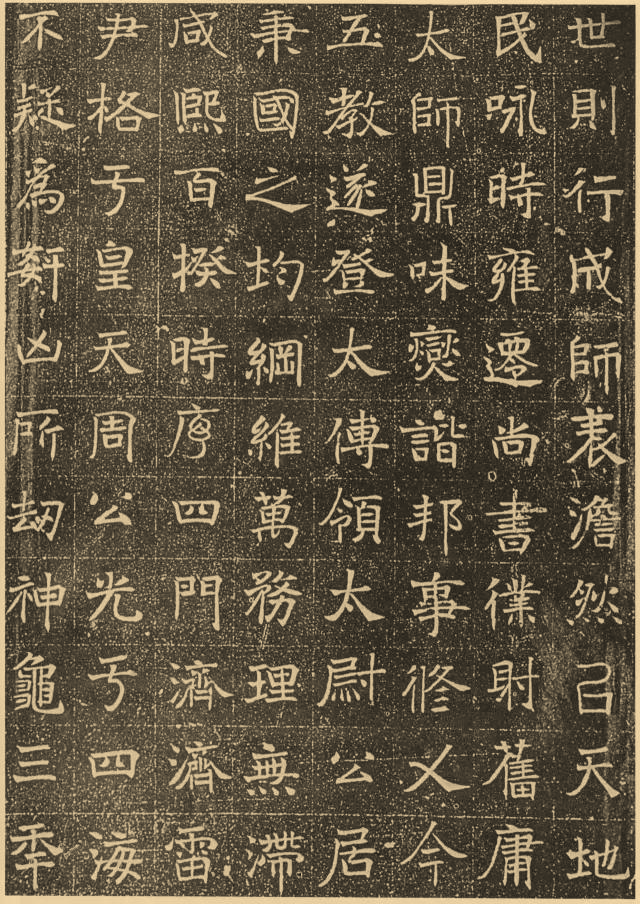 世則行成師表澹然以天地
民咏時雍遷尚書僕射舊庸
太師鼎味燮諧邦事脩乂今
五教遂登太傅領太尉公居
秉國之均綱維萬務理無滯
咸熙百揆時序四門濟濟雷
尹格于皇天周公光于四海
不疑為姧凶所劫神龜三年